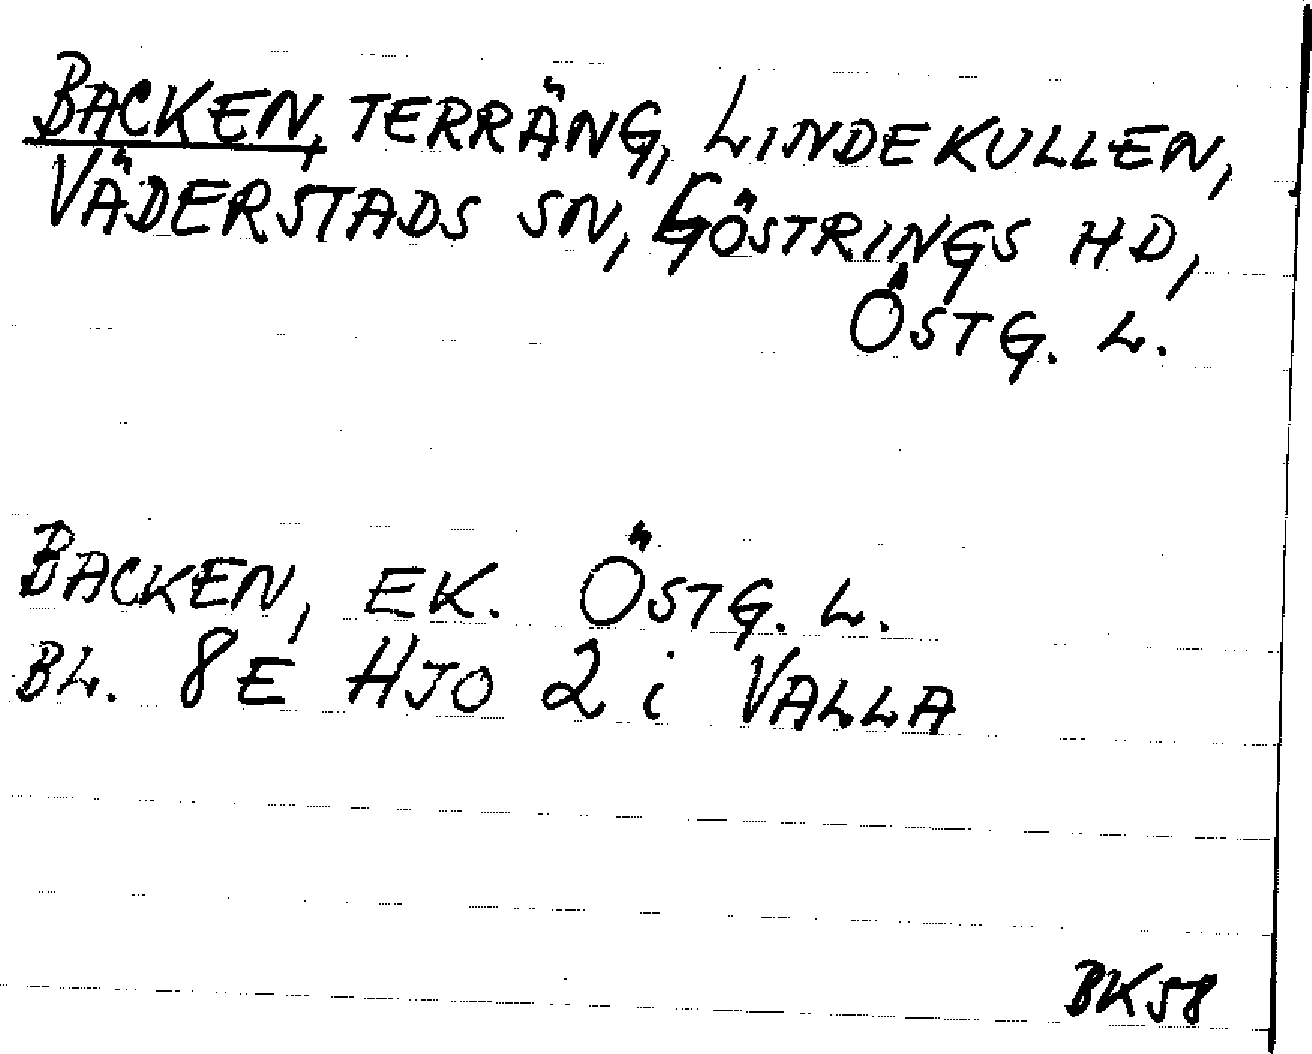 BACKEN, TERRÄNG, LINDEKULLEN,
VÄDERSTADS SN, GÖSTRINGS HD,
ÖSTG. L.
BACKEN, EK. ÖSTG. L.
BL. 8E HJO 2 i VALLA
BK58